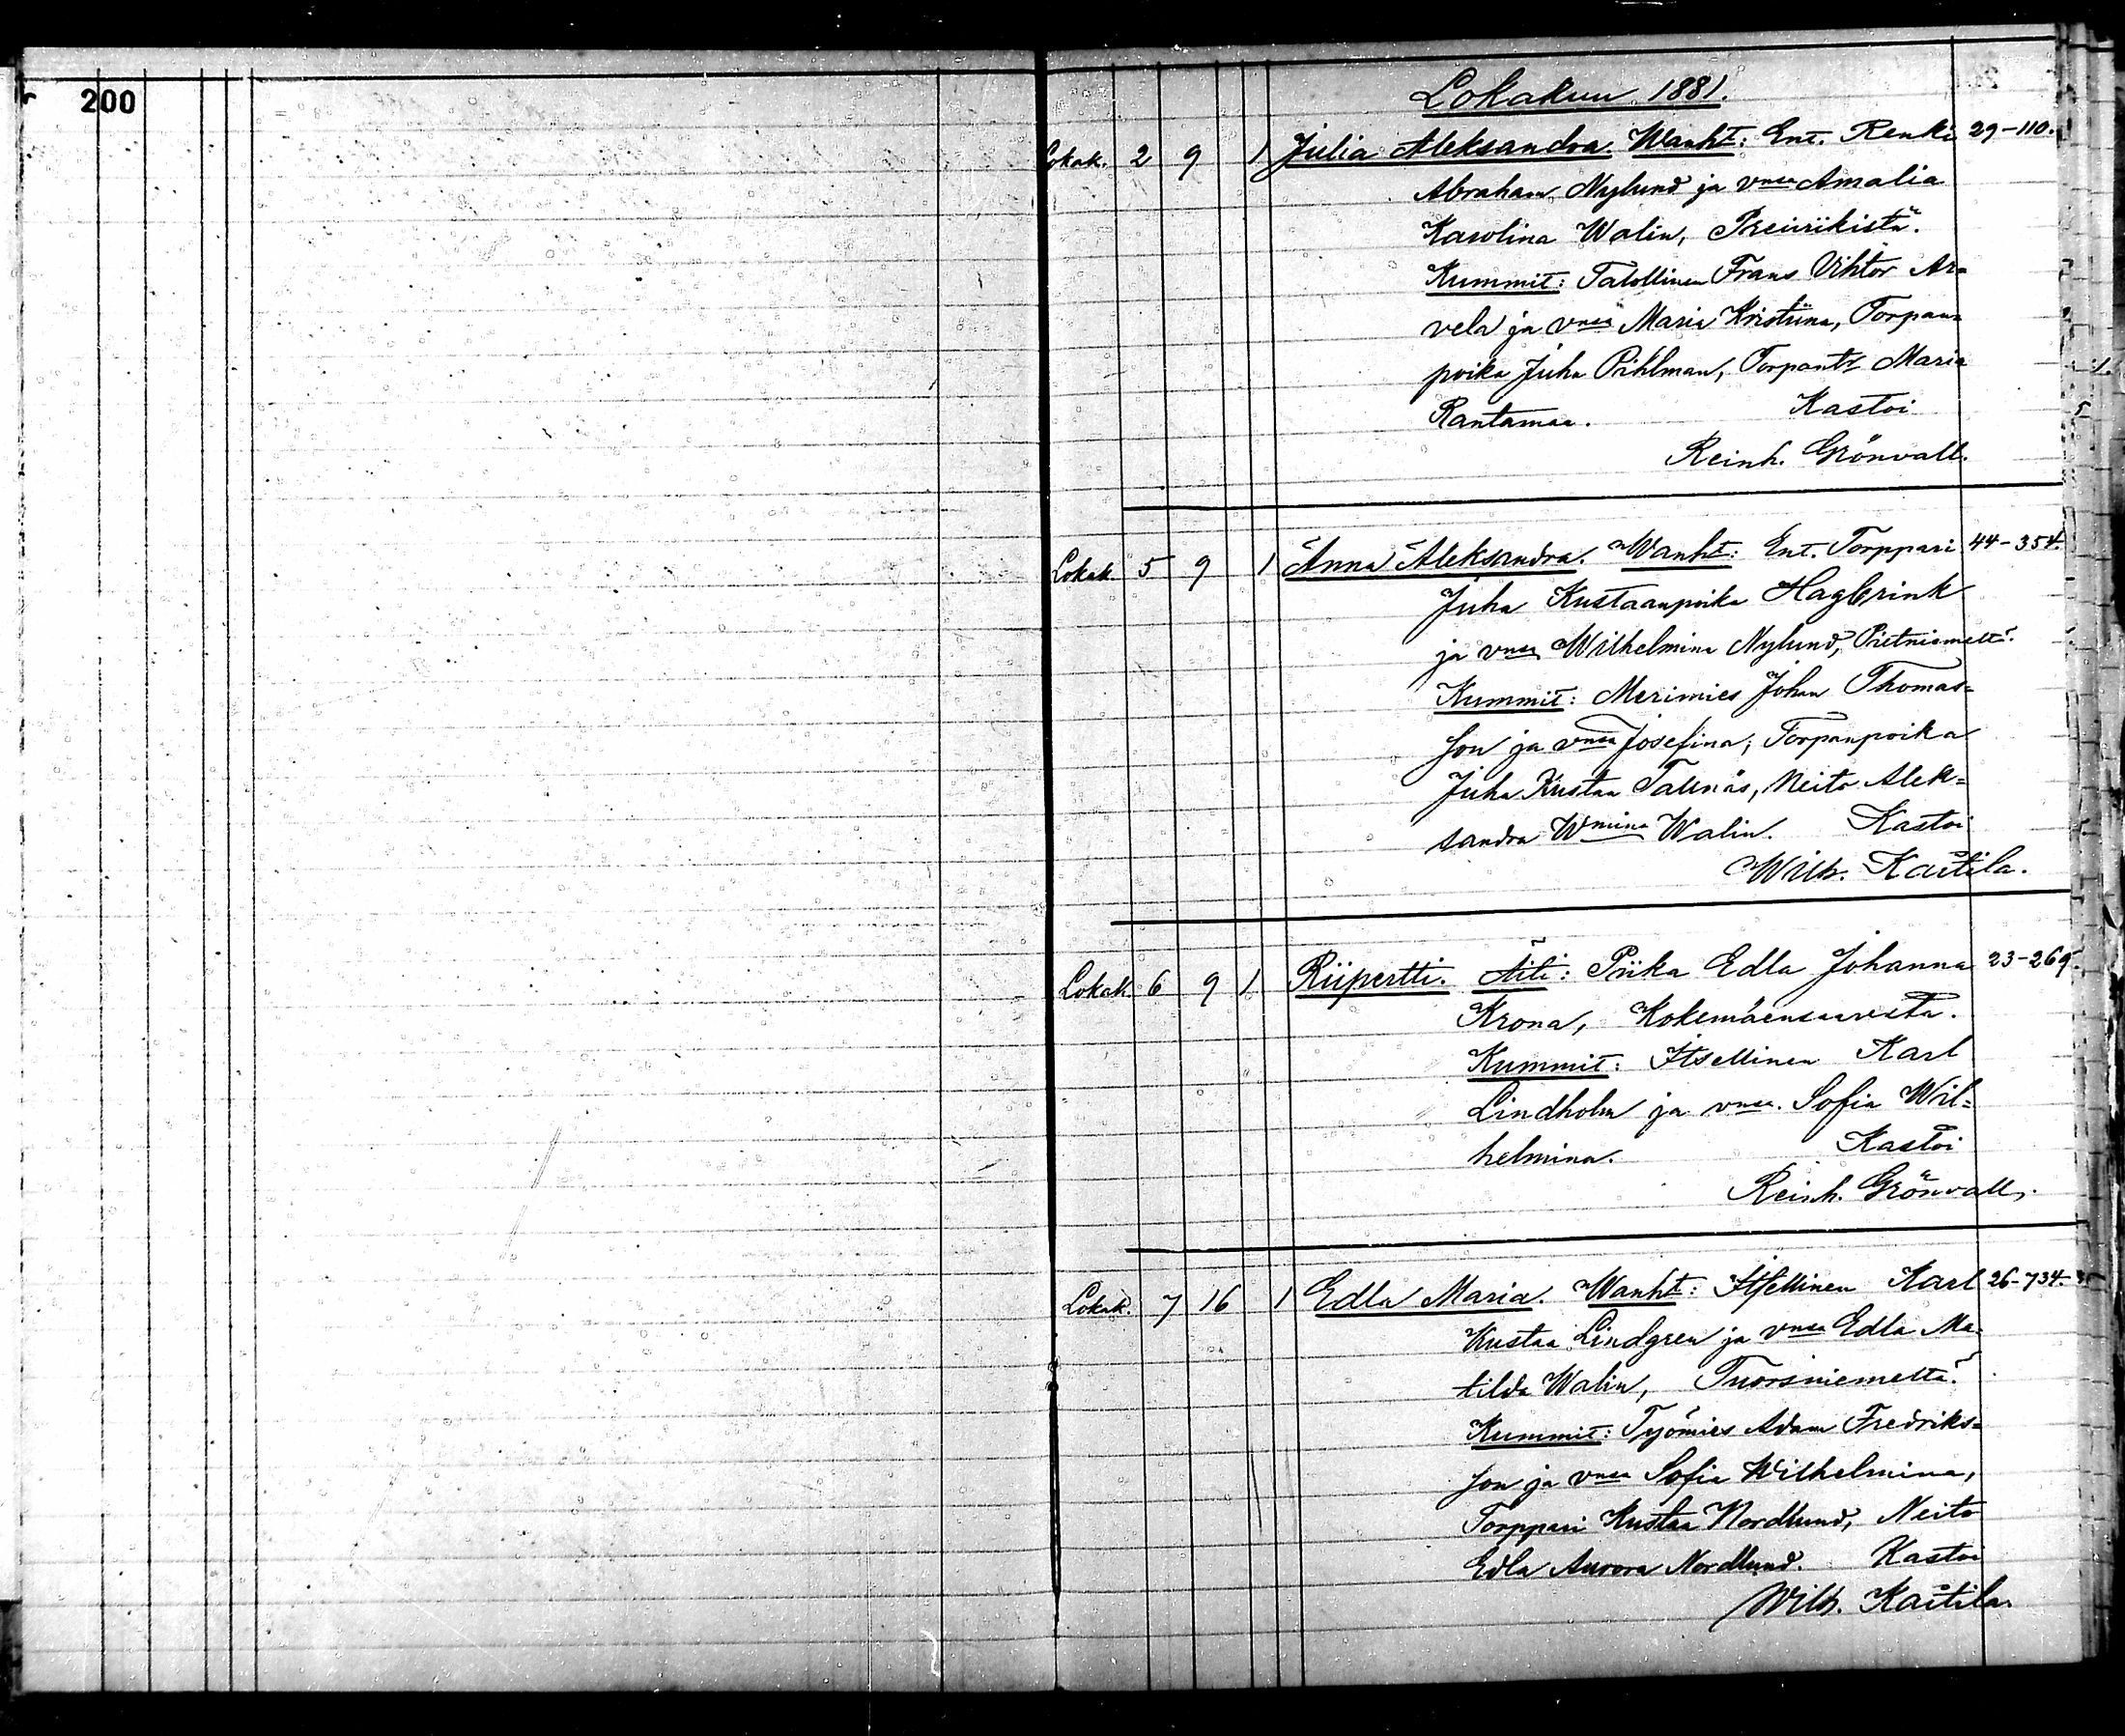 200
Lokakuu 1881.
Lokak. 2 9 1 Julia Aleksandra. Wanht: Ent. Renki 29-110.
Abraham Nylund ja vnsa Amalia
Karolina Walin, Preiviikistä.
Kummit: Talollinen Frans Vihtor Ar=
vela ja vnsa Maria Kristiina, Torpan=
poika Juha Pihlman, Torpantr Maria
Rantamaa. Kastoi
Reinh. Grönvall.
Lokak. 5 9 1 Anna Aleksandra. Wanht: Ent. Torppari 44-354.
Juha Kustaanpoika Hagbrink
ja vnsa Wilhelmina Nylund, Pietniemeltä.
Kummit: Merimies Johan Thomas=
son ja vnsa Josefina; Torpanpoika
Juha Kustaa Tallnäs, Neito Alek=
sandra Wmina Walin. Kastoi
Wilh. Kaitila.
Lokak. 6 9 1 Riipertti. Äiti: Piika Edla Johanna 23-269.
Krona, Kokemäensaaresta.
Kummit: Itsellinen Karl
Lindholm ja vnsa. Sofia Wil=
helmina. Kastoi
Reinh. Grönvall.
Lokak. 7 16 1 Edla Maria. Wanht: Itsellinen Karl 26-734.
Kustaa Lindgren ja vnsa Edla Ma=
tilda Walin, Tuorsniemeltä.
Kummit: Työmies Adam Fredriks=
son ja vnsa Sofia Wilhelmina,
Torppari Kustaa Nordlund, Neito
Edla Aurora Nordlund. Kastoi
Wilh. Kaitila.